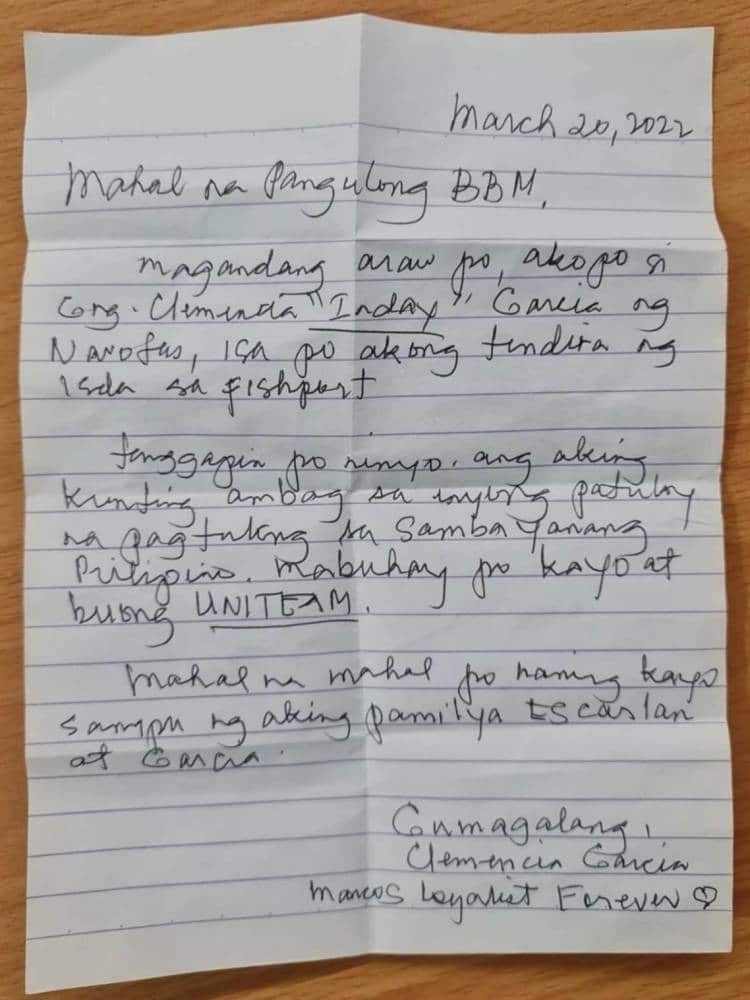 March 20, 2022
Mahal na Pangulong BBM,
magandang araw po, ako po si
Cong. Clemencia "Inday" Garcia ng
Navotas, isa po akong tindira ng
isda sa fishport
tanggapin po ninyo. ang aking
kunting ambag sa inyong patuloy
na pagtulong sa Sambayanang
Pilipino. Mabuhay po kayo at
buong UNITEAM.
Mahal na mahal po namin kayo
sampu ng aking pamilya Escarlan
at Garcia.
Gumagalang,
Clemencia Garcia
Marcos Loyalist Forever ♡